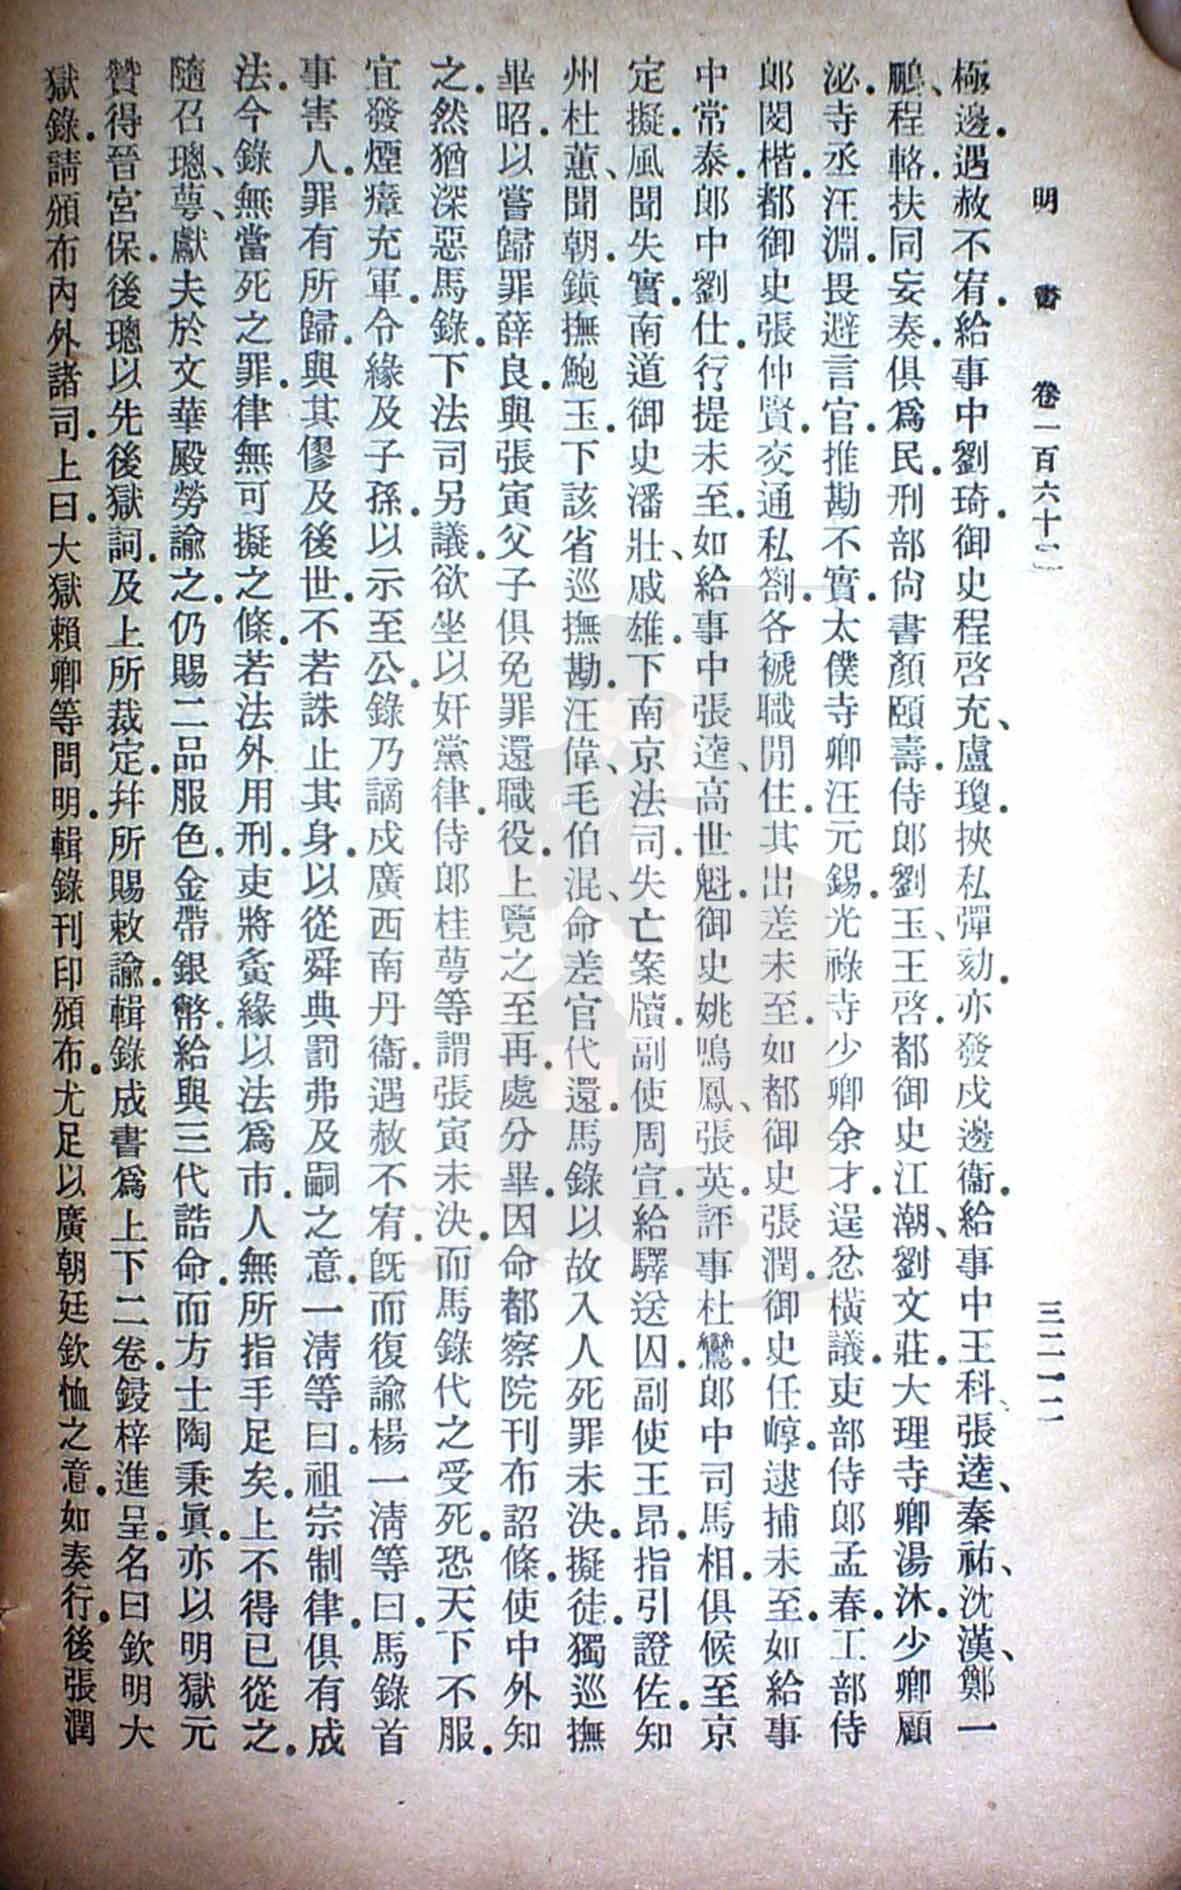 明書 卷一百六十二 三二一二
極邊．遇赦不宥．給事中劉琦．御史程啓充、盧瓊．挾私彈劾．亦發戍邊衞．給事中王科、張逵、秦祐、沈漢、鄭一
鵬、程輅．扶同妄奏．俱爲民．刑部尙書顏頤壽．侍郎劉玉、王啓．都御史江潮、劉文莊．大理寺卿湯沐．少卿顧
泌．寺丞汪淵．畏避言官．推勘不實．太僕寺卿汪元錫．光祿寺少卿余才．逞忿橫議．吏部侍郎孟春．工部侍
郎閔楷．都御史張仲賢．交通私劄．各褫職閒住．其出差未至．如都御史張潤．御史任㠉．逮捕未至．如給事
中常泰．郎中劉仕．行提未至．如給事中張逵、高世魁．御史姚鳴鳳、張英．評事杜鸞．郎中司馬相．俱候至京
定擬．風聞失實．南道御史潘壯、戚雄．下南京法司．失亡案牘．副使周宣．給驛送囚．副使王昂．指引證佐．知
州杜蕙、聞朝．鎭撫鮑玉．下該省巡撫勘．汪偉、毛伯溫、命差官代還．馬錄以故入人死罪未決．擬徒．獨巡撫
畢昭．以嘗歸罪薛良．與張寅父子俱免罪還職役．上覽之至再．處分畢．因命都察院刊布詔條．使中外知
之．然猶深惡馬錄．下法司另議．欲坐以奸黨律．侍郎桂萼等謂張寅未決．而馬錄代之受死．恐天下不服．
宜發煙瘴充軍．令緣及子孫．以示至公．錄乃謫戍廣西南丹衞．遇赦不宥．旣而復諭楊一淸等曰．馬錄首
事害人．罪有所歸．與其僇及後世．不若誅止其身．以從舜典罰弗及嗣之意．一淸等曰．祖宗制律．俱有成
法．今錄無當死之罪．律無可擬之條．若法外用刑．吏將夤緣以法爲市．人無所指手足矣．上不得已從之．
隨召璁、萼、獻夫於文華殿勞諭之．仍賜二品服色．金帶銀幣．給與三代誥命．而方士陶秉眞．亦以明獄元
贊得晉宮保．後璁以先後獄詞．及上所裁定．幷所賜敕諭．輯錄成書爲上下二卷．鋟梓進呈．名曰欽明大
獄錄．請頒布內外諸司．上曰．大獄賴卿等問明．輯錄刊印頒布．尤足以廣朝廷欽恤之意．如奏行．後張潤